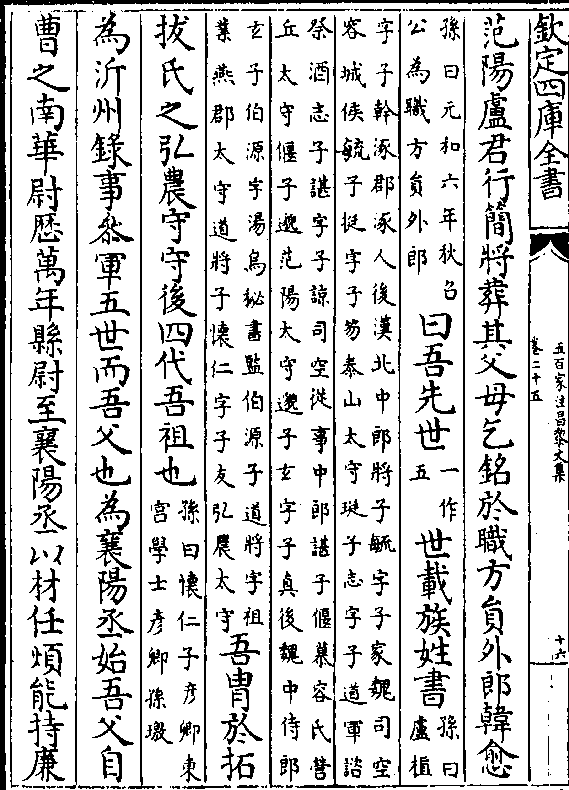 欽定四庫全書
五百家注昌黎文集
卷二十五
十六
范陽盧君行簡將葬其父母乞銘於職方員外郎韓愈
孫曰元和六年秋召
公為職方員外郎
曰吾先世
一作
五
世載族姓書
孫曰
盧植
字子幹涿郡涿人後漢北中郎將子毓字子家魏司空
容城侯毓子挺字子笏泰山太守珽子志字子道軍諮
祭酒志子諶字子諒司空從事中郎諶子偃慕容氏營
丘太守偃子邈范陽太守邈子玄字子真後魏中侍郎
玄子伯源字湯烏秘書監伯源子道將字祖
業燕郡太守道將子懷仁字子友弘農太守
吾胄於拓
拔氏之弘農守守後四代吾祖也
孫曰懷仁子彥卿東
宮學士彥卿孫璥
為沂州錄事參軍五世而吾父也為襄陽丞始吾父自
曹之南華尉歷萬年縣尉至襄陽丞以材任煩能持廉